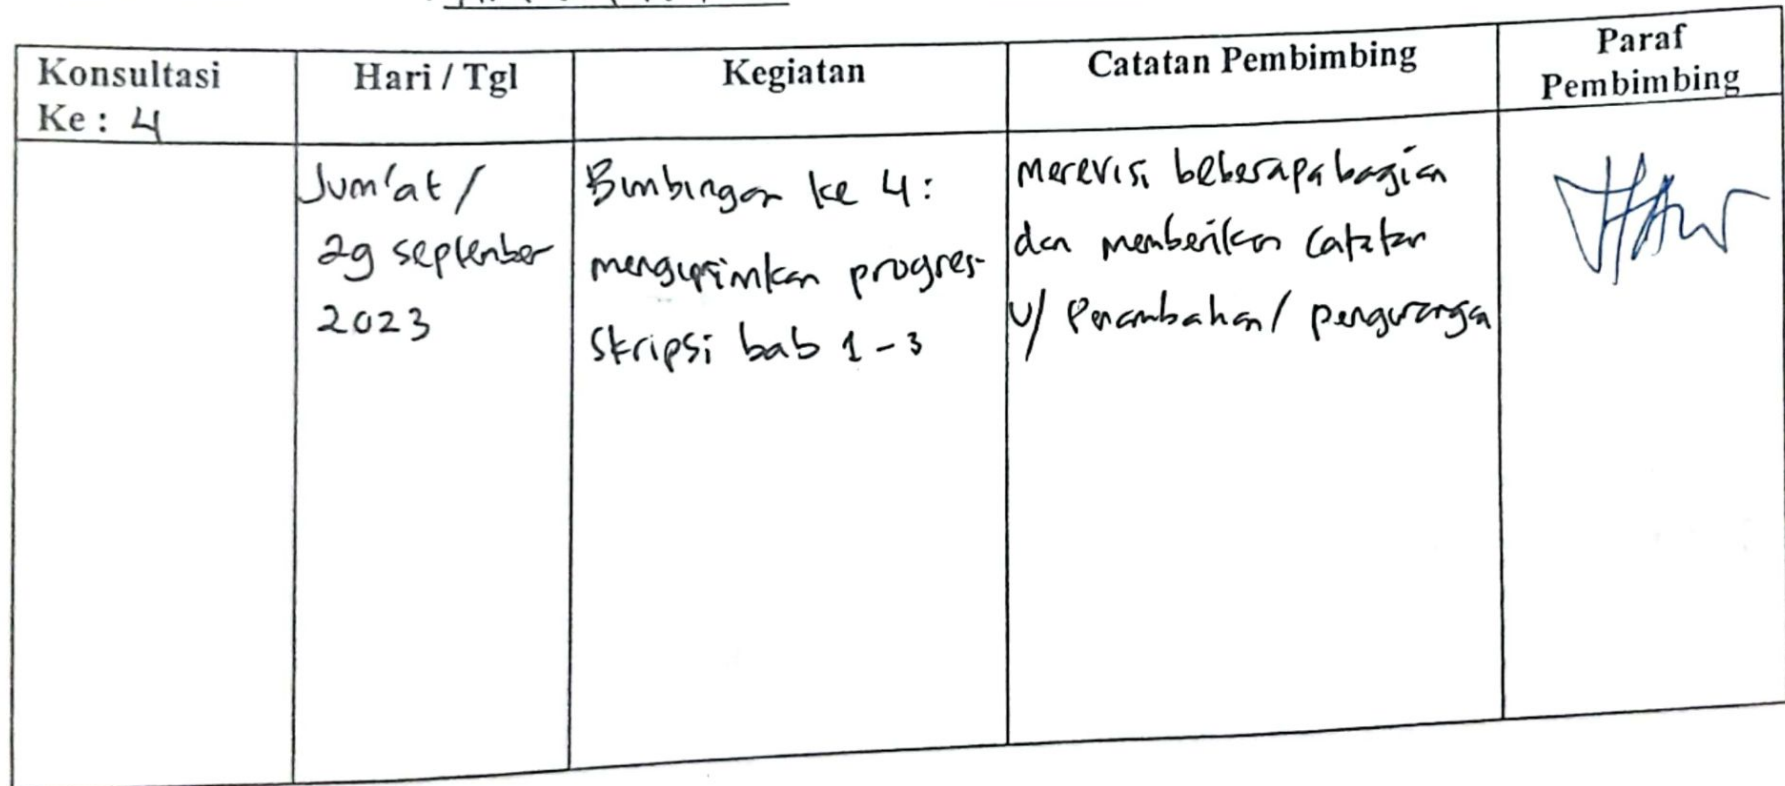 Konsultasi
Ke : 4
Hari / Tgl
Kegiatan
Catatan Pembimbing
Paraf
Pembimbing
Jum'at /
29 september
2023
Bimbingan ke 4:
mengirimkan progres
skripsi bab 1-3
merevisi beberapa bagian
dan memberikan catatan
u/ Penambahan / pengurangan